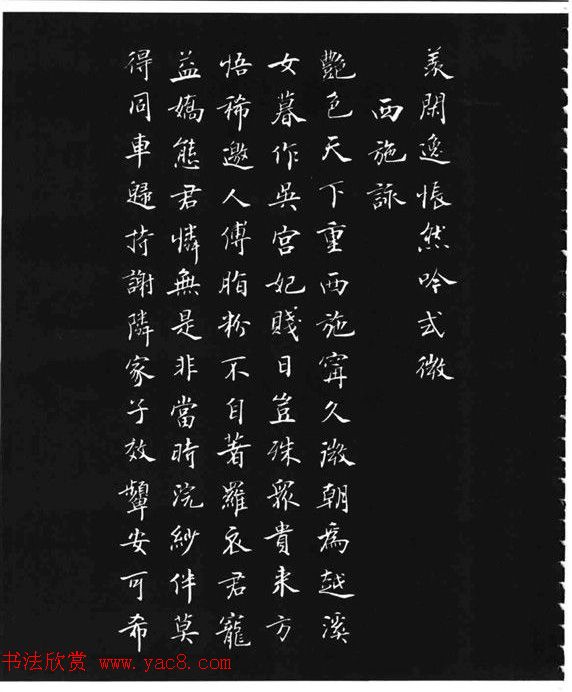 羨閑逸悵然吟式微
西施詠
艷色天下重西施寧久微朝為越溪
女暮作吳宮妃賤日豈殊眾貴來方
悟稀邀人傅脂粉不自著羅衣君寵
益嬌態君憐無是非當時浣紗伴莫
得同車歸持謝隣家子效顰安可希
书法欣赏 www.yac8.com